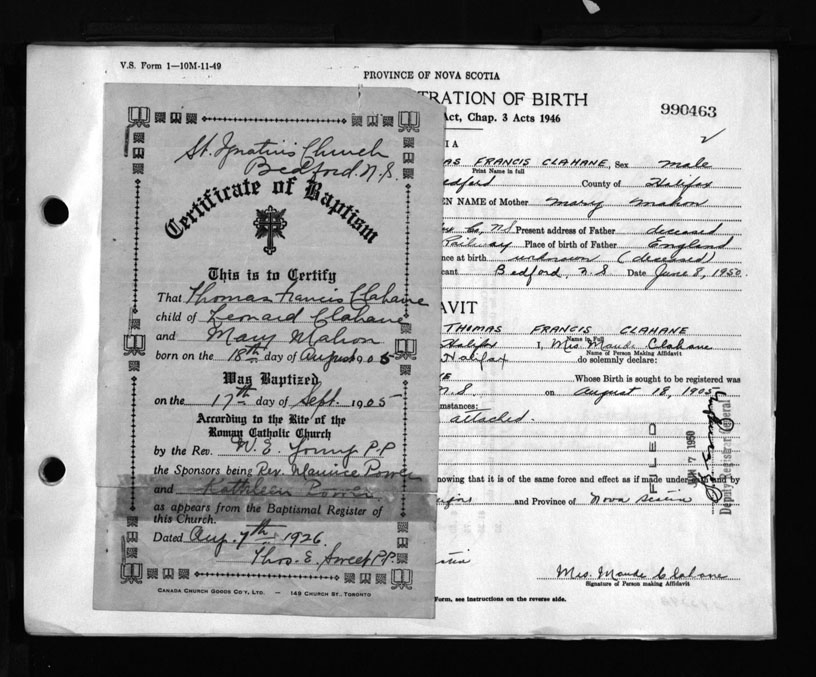 V.S. Form 1—10M-11-49
PROVINCE OF NOVA SCOTIA
TRATION OF BIRTH
Act, Chap. 3 Acts 1946
990463
St. Ignatius Church
Bedford N.S.
Certificate of Baptism
This is to Certify
That Thomas Francis Clahane
child of Leonard Clahane
and Mary Mahon
born on the 18th day of August 1905
Was Baptized
on the 17th day of Sept. 1905
According to the Rite of the
Roman Catholic Church
by the Rev. W. E. Young P.P.
the Sponsors being Rev. Maurice Power
and Kathleen Power
as appears from the Baptismal Register of
this Church.
Dated Aug. 7th 1926
Thos. E. Sweet P.P.
CANADA CHURCH GOODS CO'Y, LTD. — 149 CHURCH ST., TORONTO
IA
AS FRANCIS CLAHANE, Sex Male
Print Name in full
edford County of Halifax
EN NAME of Mother Mary Mahon
Co, NS Present address of Father deceased
Railway Place of birth of Father England
nce at birth unknown (deceased)
cant Bedford, N.S Date June 8, 1950.
AVIT
THOMAS FRANCIS CLAHANE
Name in Full
Halifax I, Mrs. Maude Clahane
Name of Person Making Affidavit
Halifax do solemnly declare:
E Whose Birth is sought to be registered was
N.S. on August 18, 1905
mstances:
attached.
FILED
7 1950
Deputy Registrar General
nowing that it is of the same force and effect as if made under and by
and Province of Nova Scotia
Mrs. Maude Clahane
Signature of Person making Affidavit
Form, see instructions on the reverse side.